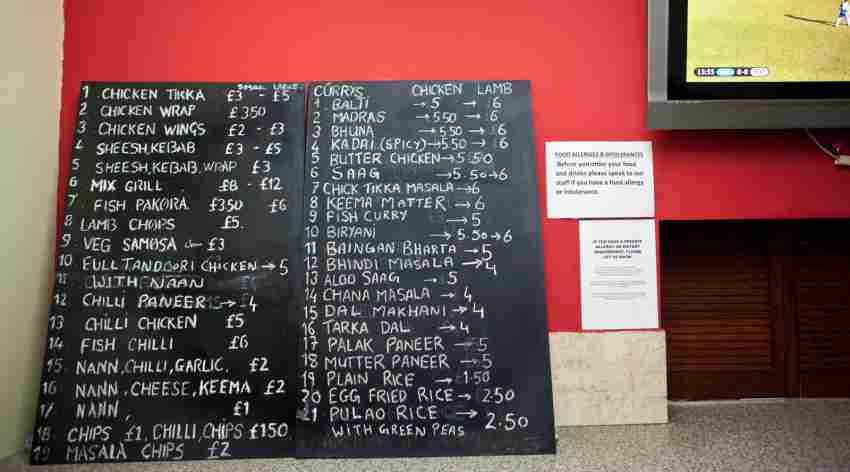 SMALL LARGE
1 CHICKEN TIKKA £3 - £5
2 CHICKEN WRAP £350
3 CHICKEN WINGS £2 - £3
4 SHEESH, KEBAB £3 - £5
5 SHEESH, KEBAB, WRAP £3
6 MIX GRILL £8 - £12
7 FISH PAKORA £350 £6
8 LAMB CHOPS £5.
9 VEG SAMOSA £3
10 FULL TANDOORI CHICKEN → 5
11 WITH NAAN
12 CHILLI PANEER → £4
13 CHILLI CHICKEN £5
14 FISH CHILLI £6
15 NANN, CHILLI, GARLIC. £2
16 NANN, CHEESE, KEEMA £2
17 NANN, £1
18 CHIPS £1, CHILLI, CHIPS £150
19 MASALA CHIPS £2
CURRYS CHICKEN LAMB
1. BALTI → 5 → 6
2 MADRAS → 5.50 → 6
3 BHUNA → 5.50 → 6
4 KADAI (SPICY) → 5.50 → 6
5 BUTTER CHICKEN → 5.50
6 SAAG → 5.50 → 6
7 CHICK TIKKA MASALA → 6
8 KEEMA MATTER → 6
9 FISH CURRY → 5
10 BIRYANI → 5.50 → 6
11 BAINGAN BHARTA → 5
12 BHINDI MASALA → 4
13 ALOO SAAG → 5
14 CHANA MASALA → 4
15 DAL MAKHANI → 4
16 TARKA DAL → 4
17 PALAK PANEER → 5
18 MUTTER PANEER → 5
19 PLAIN RICE → 1.50
20 EGG FRIED RICE → 2.50
21 PULAO RICE → 2.50
WITH GREEN PEAS
FOOD ALLERGIES & INTOLERANCES
Before you order your food
and drinks please speak to our
staff if you have a food allergy
or intolerance.
IF YOU HAVE A SPECIFIC
ALLERGY OR DIETARY
REQUIREMENT, PLEASE
LET US KNOW
13:55 0-0